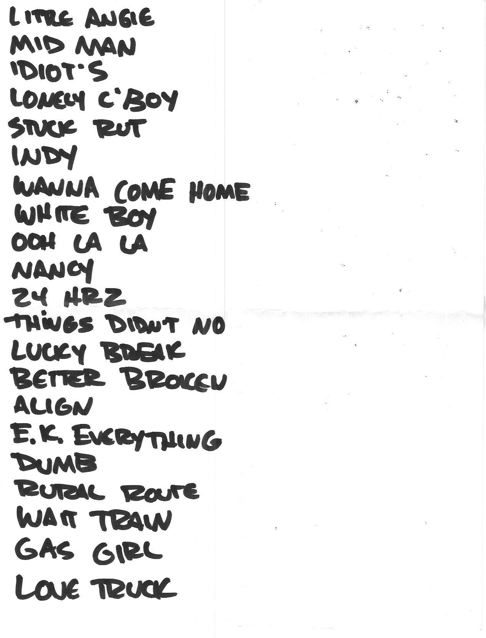 LITTLE ANGIE
MID MAN
IDIOT'S
LONELY C'BOY
STUCK RUT
INDY
WANNA COME HOME
WHITE BOY
OOH LA LA
NANCY
24 HRZ
THINGS DIDN'T NO
LUCKY BREAK
BETTER BROKEN
ALIGN
E.K. EVERYTHING
DUMB
RURAL ROUTE
WAIT TRAIN
GAS GIRL
LOVE TRUCK